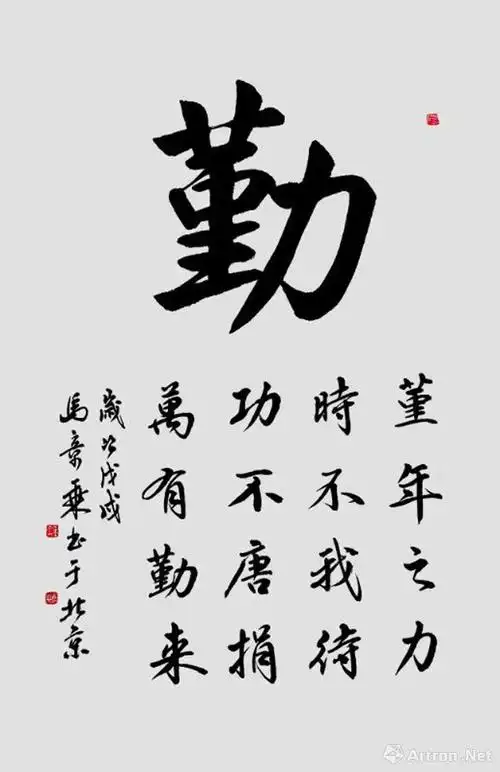 勤
堇年之力
時不我待
功不唐捐
萬有勤来
歲次戊戌
馬章乘书于北京
Artron.Net